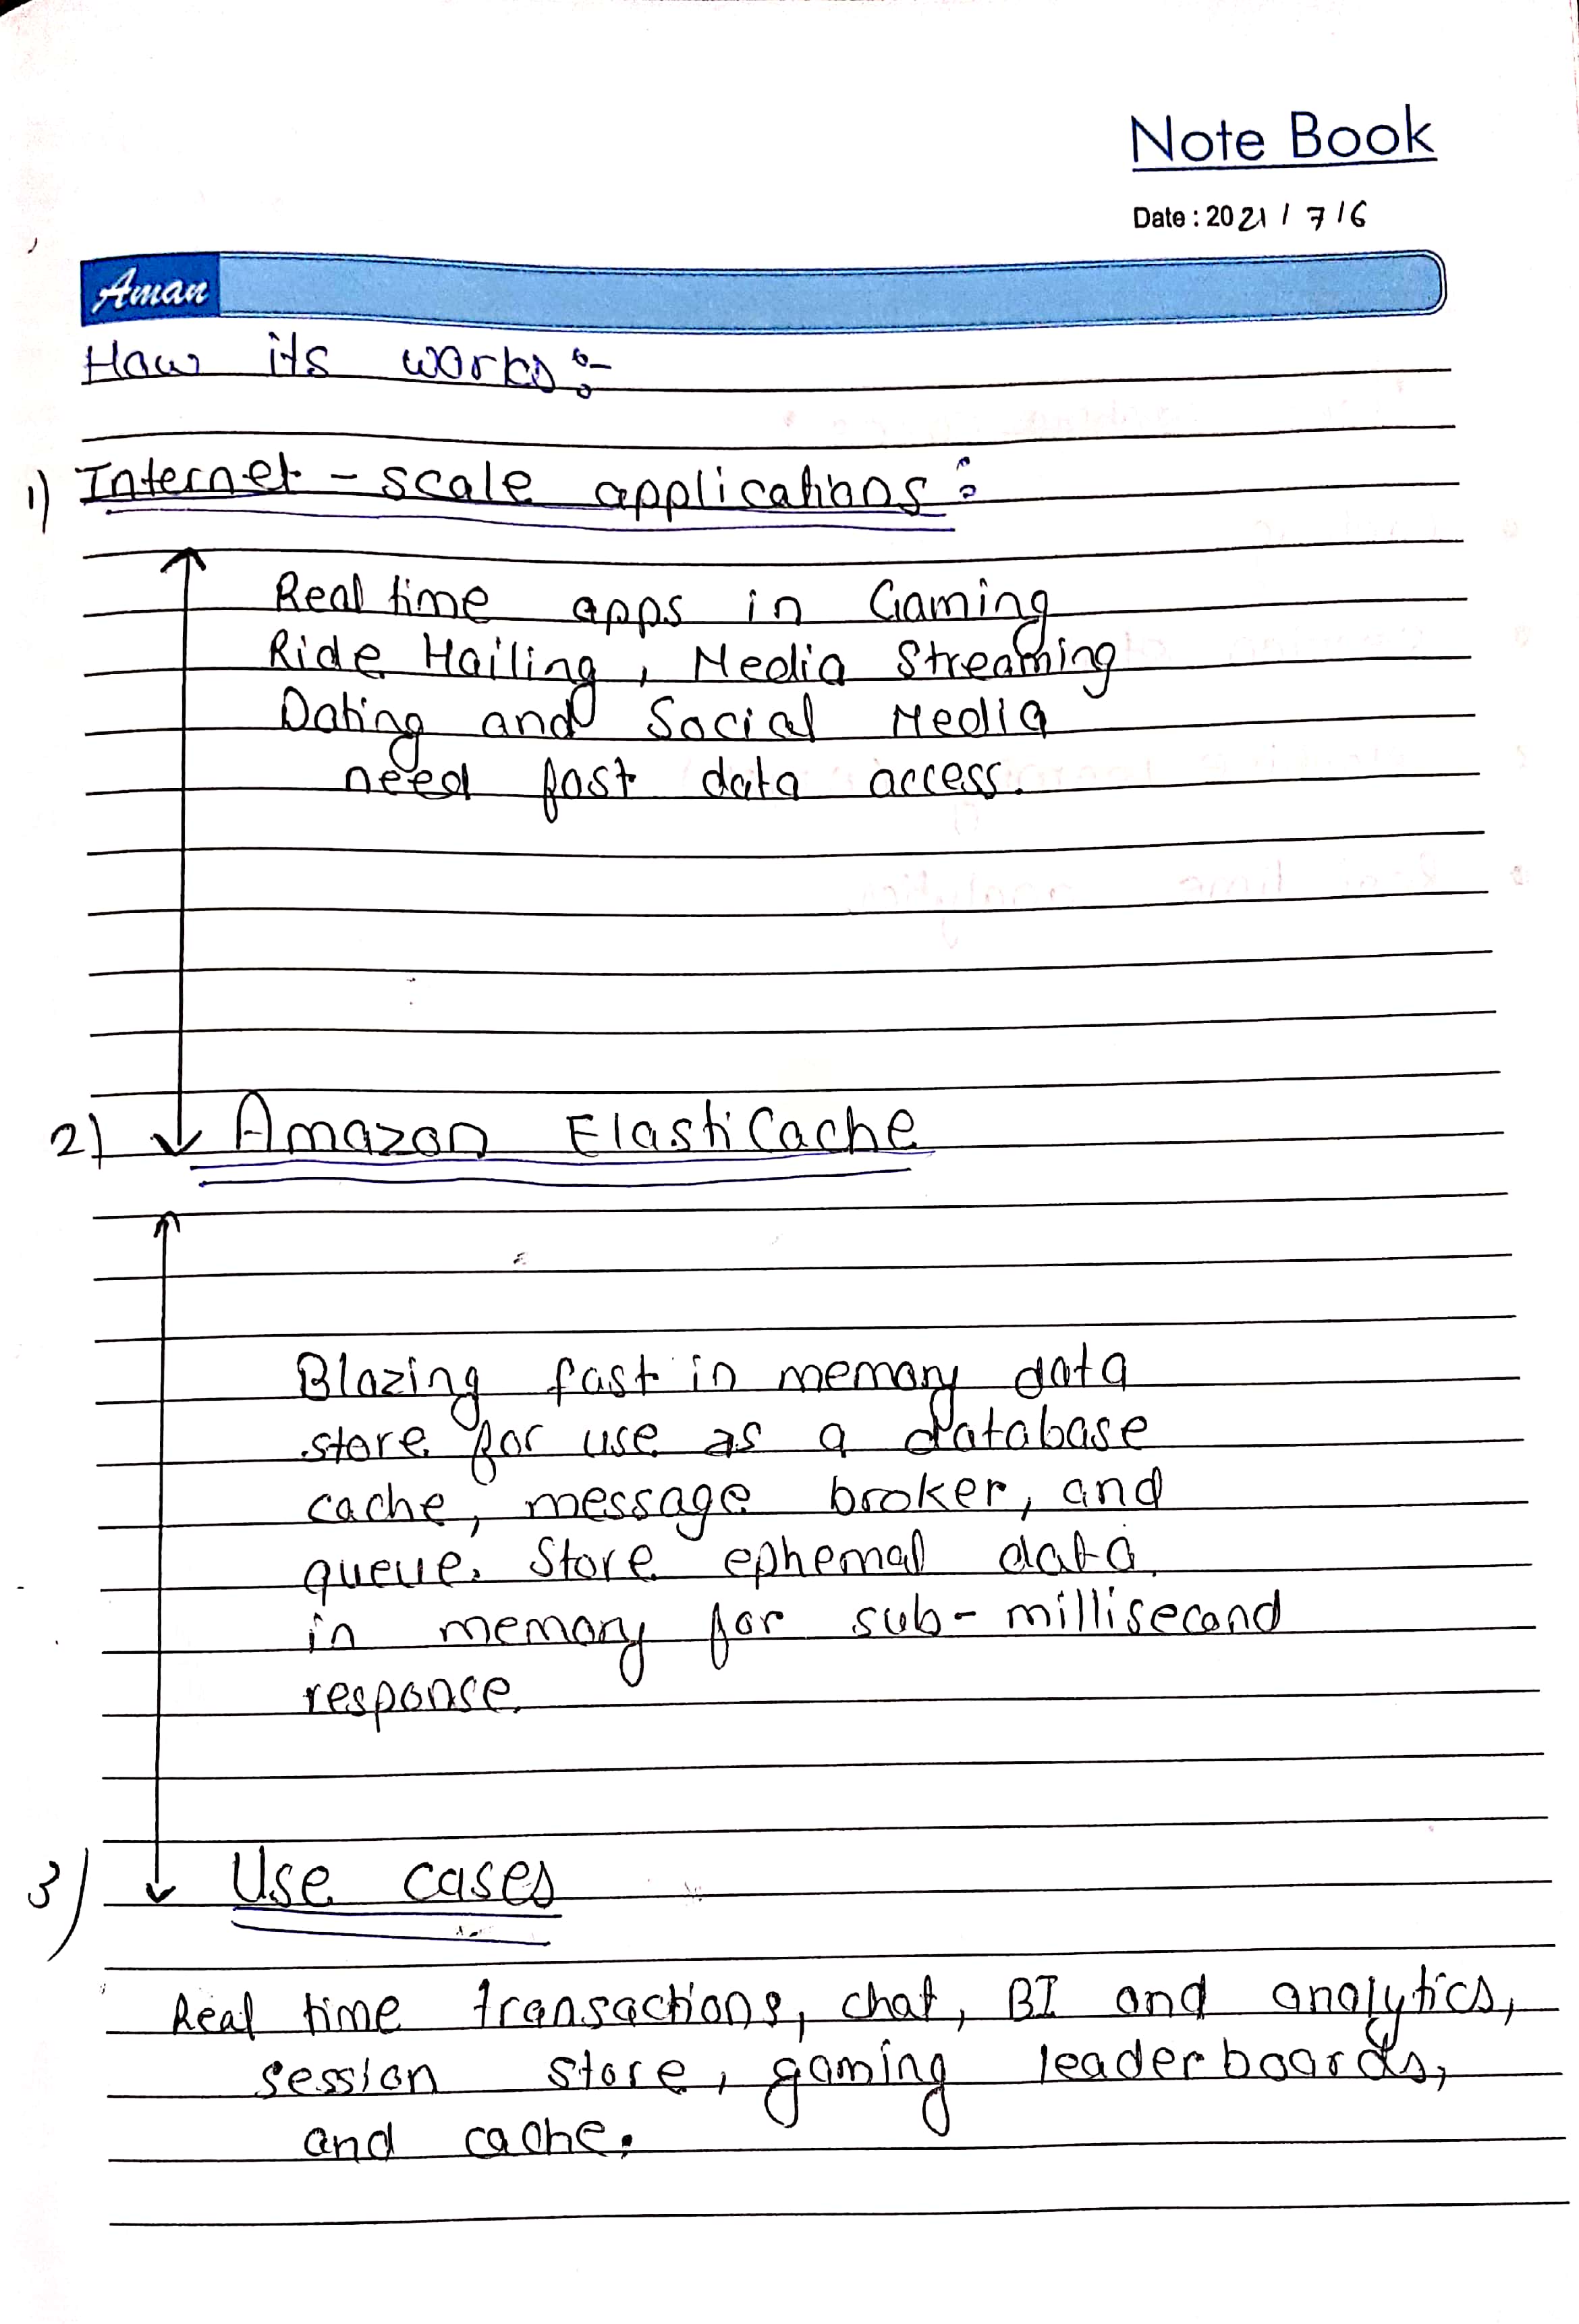 Note Book
Date : 2021 / 7 / 6
Aman
How its works :-
1) Internet - scale applications :
Real time apps in Gaming
Ride Hailing , Media Streaming
Dating and Social Media
need fast data access.
2) Amazon ElastiCache
Blazing fast in memory data
store for use as a database
cache, message broker, and
queue. Store ephemal data
in memory for sub-millisecond
response.
3) Use cases
Real time transactions, chat, BI and analytics,
session store, gaming leaderboards,
and cache.